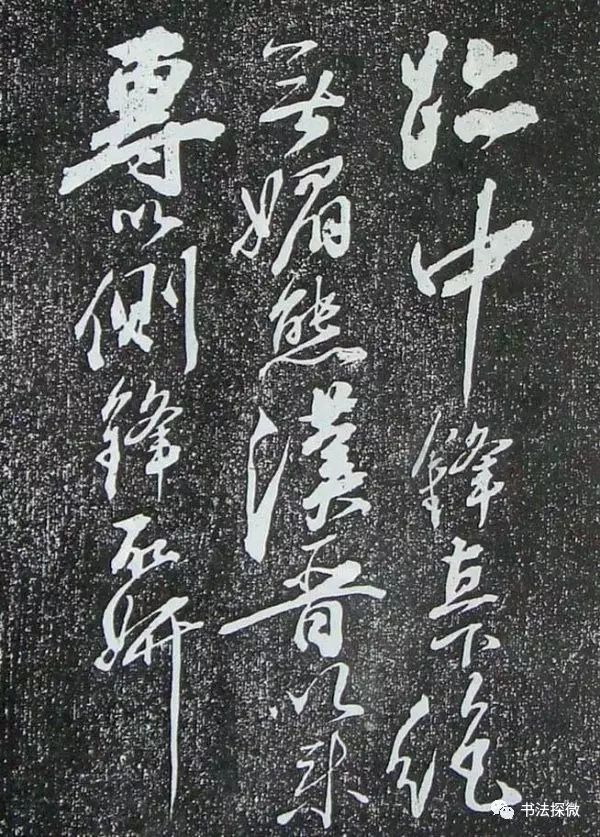 中鋒直下絕
無媚態漢晉以來
專以側鋒取妍
书法探微